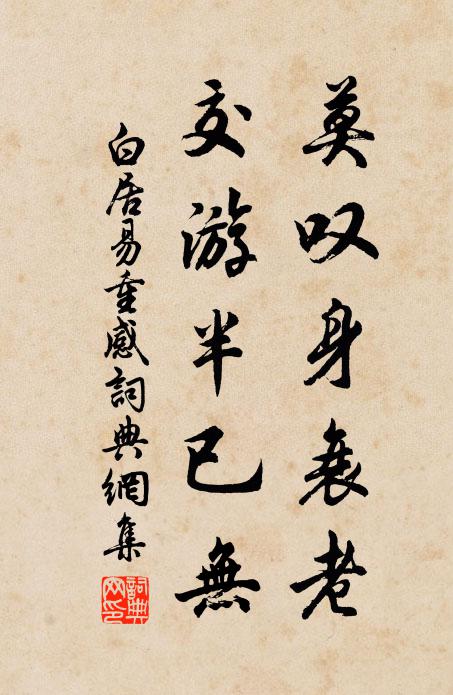 莫叹身衰老
交游半已無
白居易重感詞典網集
詞典网印